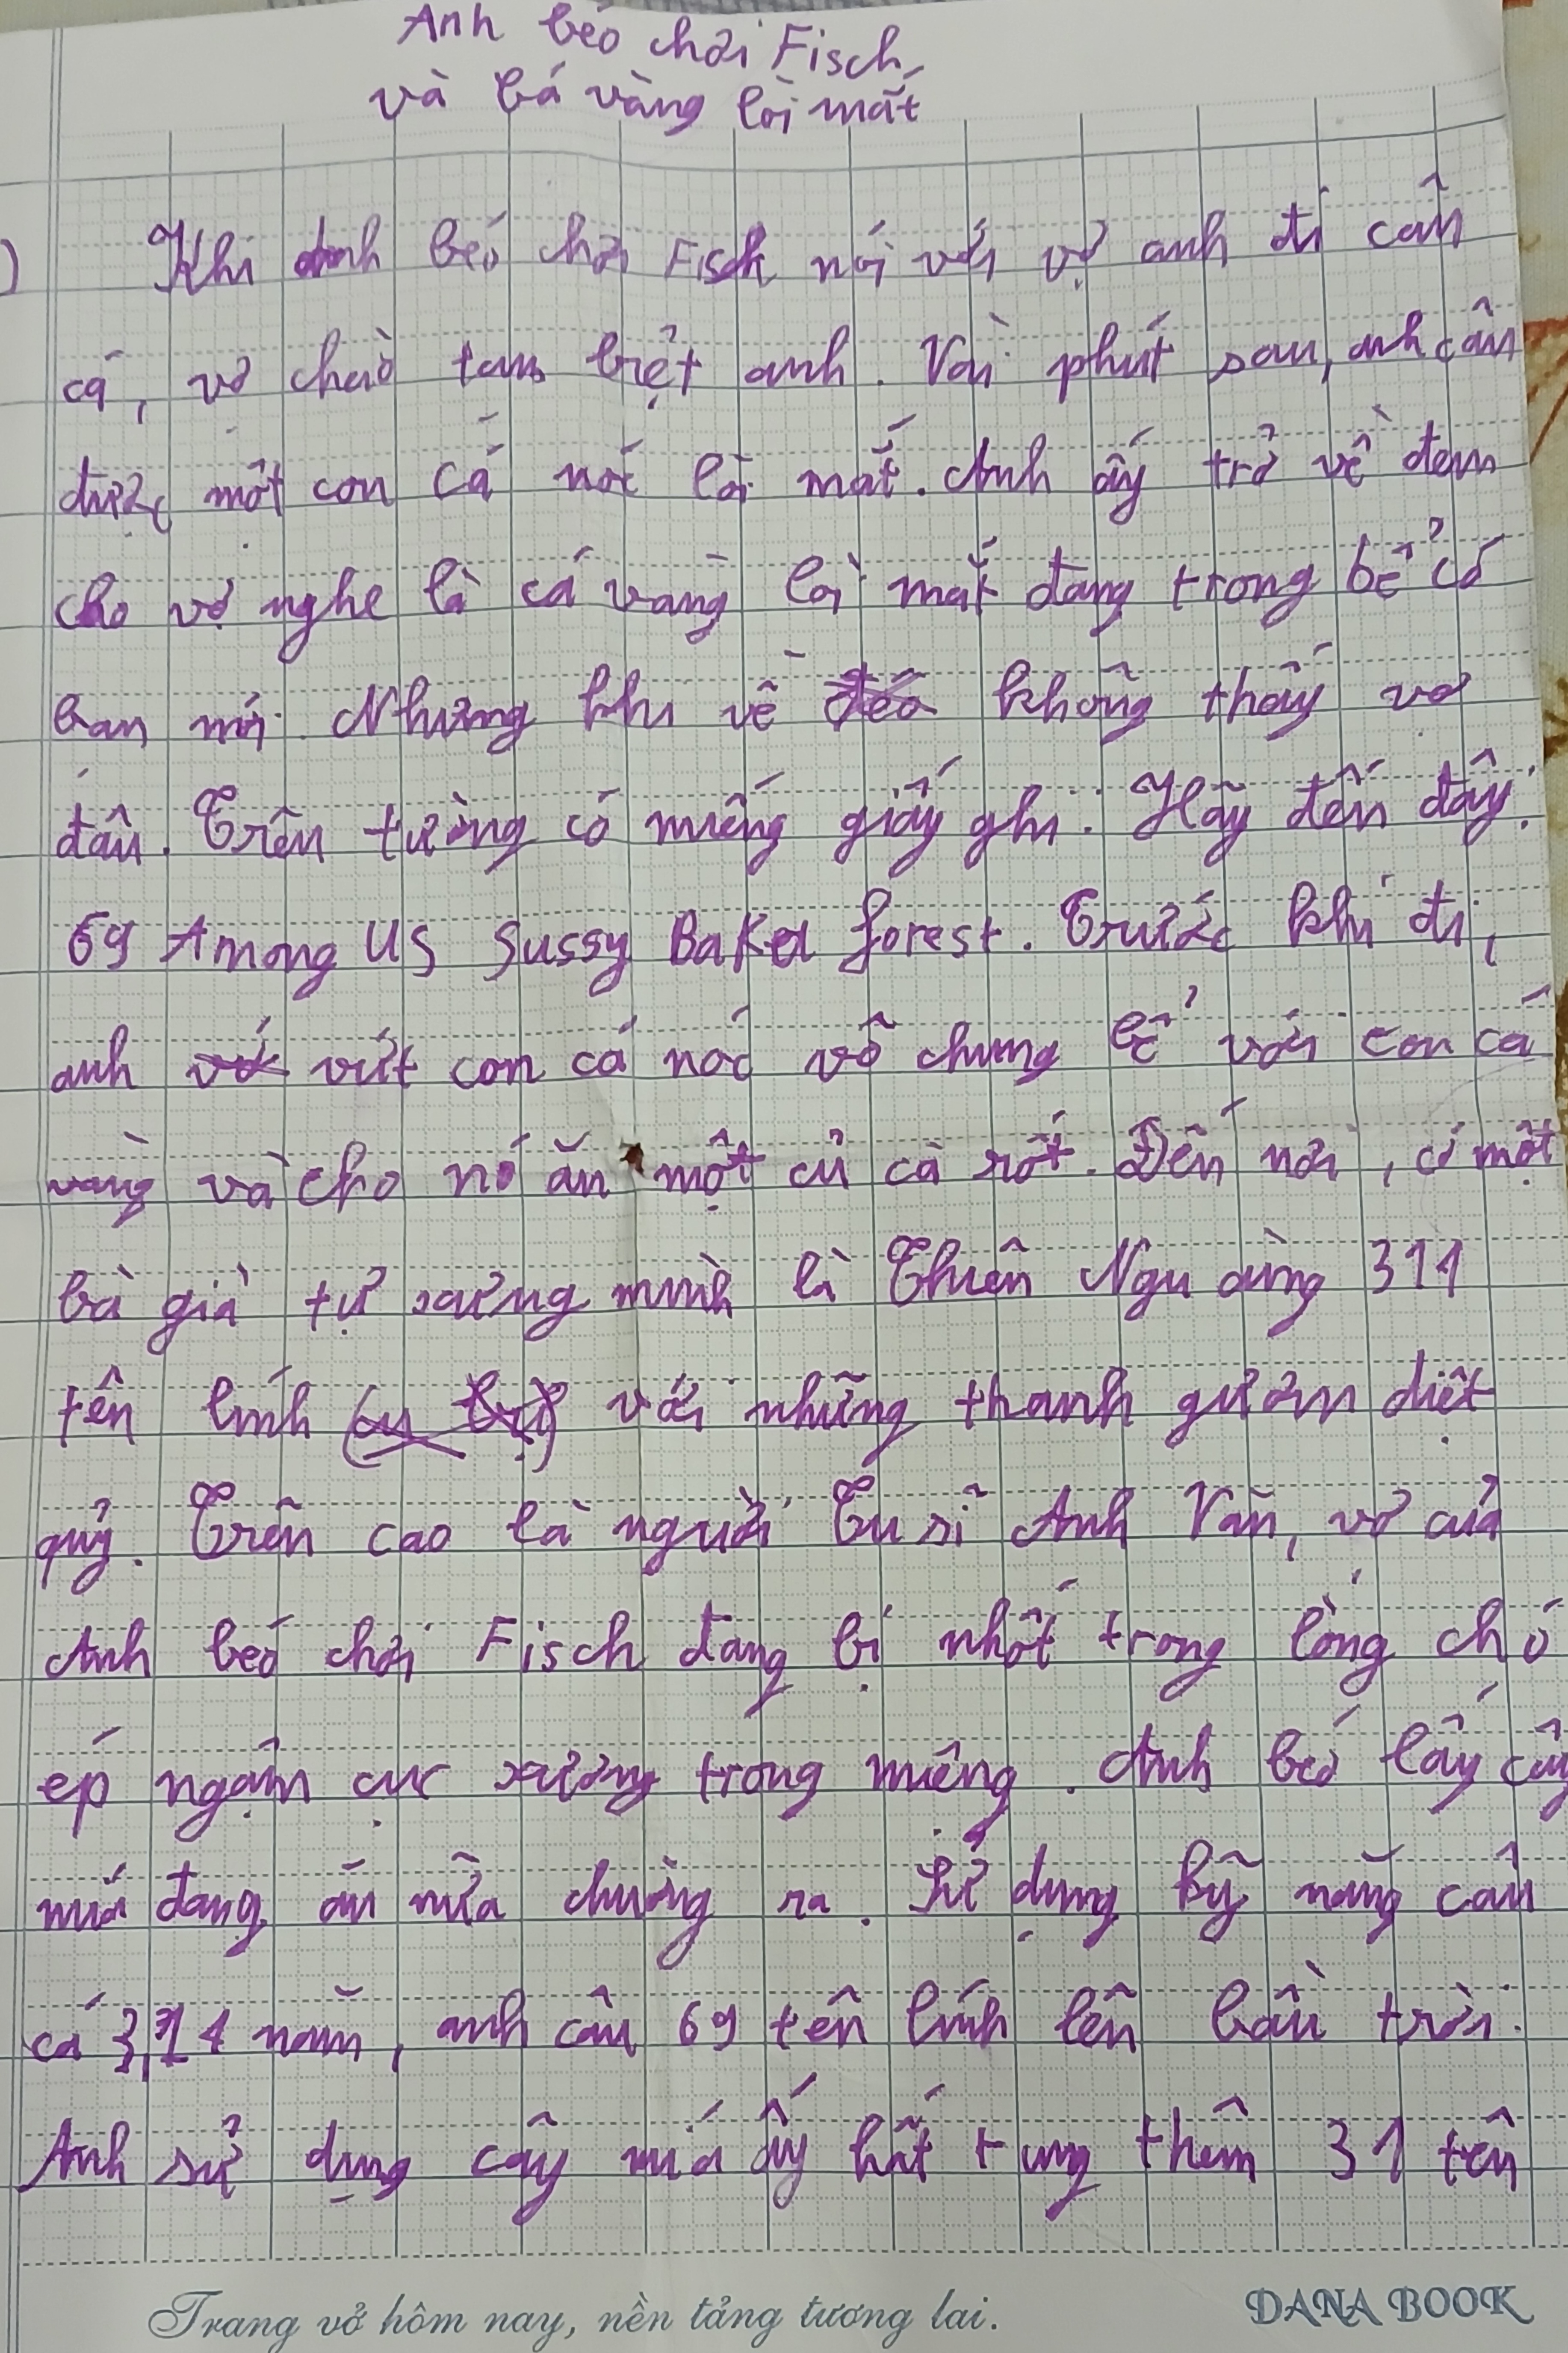 Anh béo chơi Fisch
và bá vàng lòi mắt
Khi anh béo chơi Fisch nói với vợ anh đi câu
cá, vợ chào tạm biệt anh. Vài phút sau, anh câu
được một con cá nóc lòi mắt. Anh ấy trở về đem
cho vợ nghe là cá vàng lòi mắt đang trong bể có
bạn mới. Nhưng khi về không thấy vợ
đâu. Trên tường có miếng giấy ghi: Hãy đến đây:
69 Among US Sussy Baka forest. Trước khi đi,
anh vứt con cá nóc vô chung bể với con cá
vàng và cho nó ăn một củ cà rốt. Đến nơi, có một
bà già tự xưng mình là Thiên Ngu cùng 311
tên lính với những thanh gươm diệt
quỷ. Trên cao là người Tu sĩ Anh Văn, vợ của
Anh béo chơi Fisch đang bị nhốt trong lồng chó
ép ngậm cục xương trong miệng. Anh béo lấy cây
mía đang ăn nửa chừng ra. Sử dụng kỹ năng câu
cá 3,14 năm, anh câu 69 tên lính lên bầu trời.
Anh sử dụng cây mía ấy hất tung thêm 31 tên
Trang vở hôm nay, nền tảng tương lai.
DANA BOOK